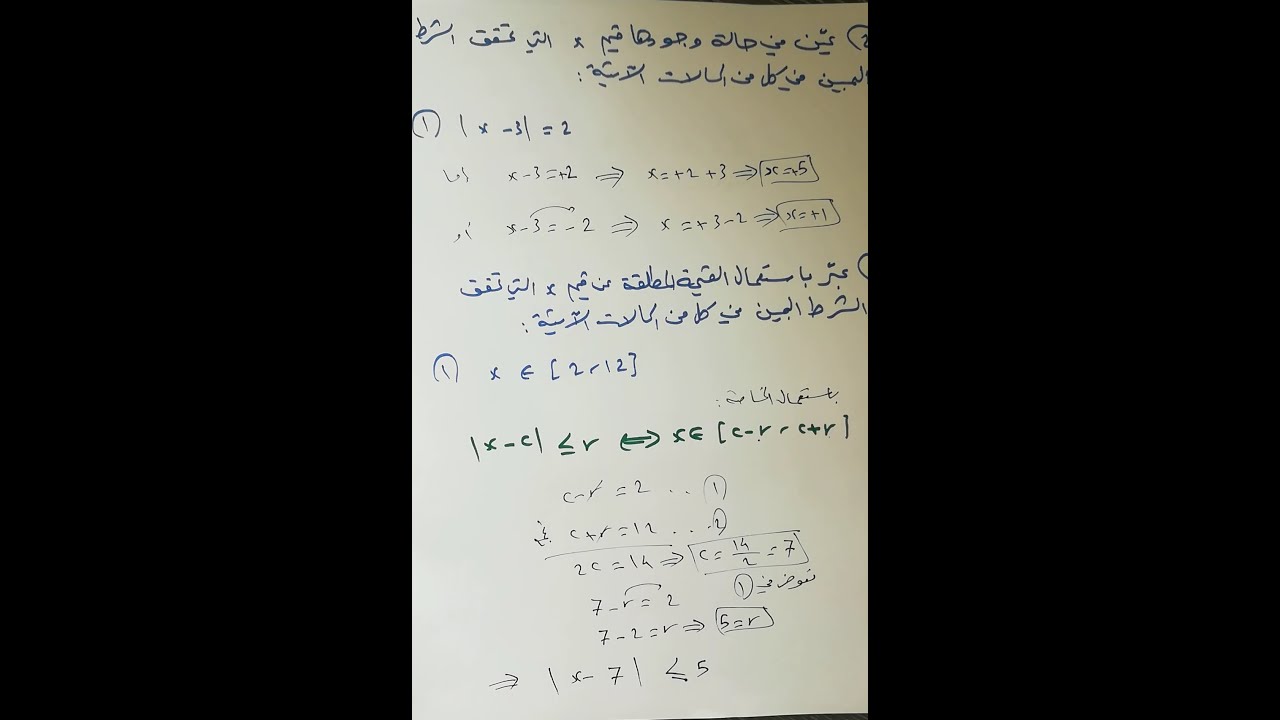 2) عيّن في حالة وجودها قيم x التي تحقق الشرط
المبين في كل من الحالات الآتية:
① |x-3| = 2
اما x-3=+2 ⇒ x=+2+3 ⇒ x=+5
أو x-3=-2 ⇒ x=+3-2 ⇒ x=+1
عبّر باستعمال القيمة المطلقة عن قيم x التي تحقق
الشرط المبين في كل من الحالات الآتية:
① x ∈ [2, 12]
باستعمال الخاصة:
|x-c| ≤ r ⇔ x∈ [c-r, c+r]
c-r = 2 .. ①
c+r=12 ... ②
2c=14 ⇒ c=14/2=7
نعوض في ①
7-r=2
7-2=r ⇒ 5=r
⇒ |x-7| ≤ 5